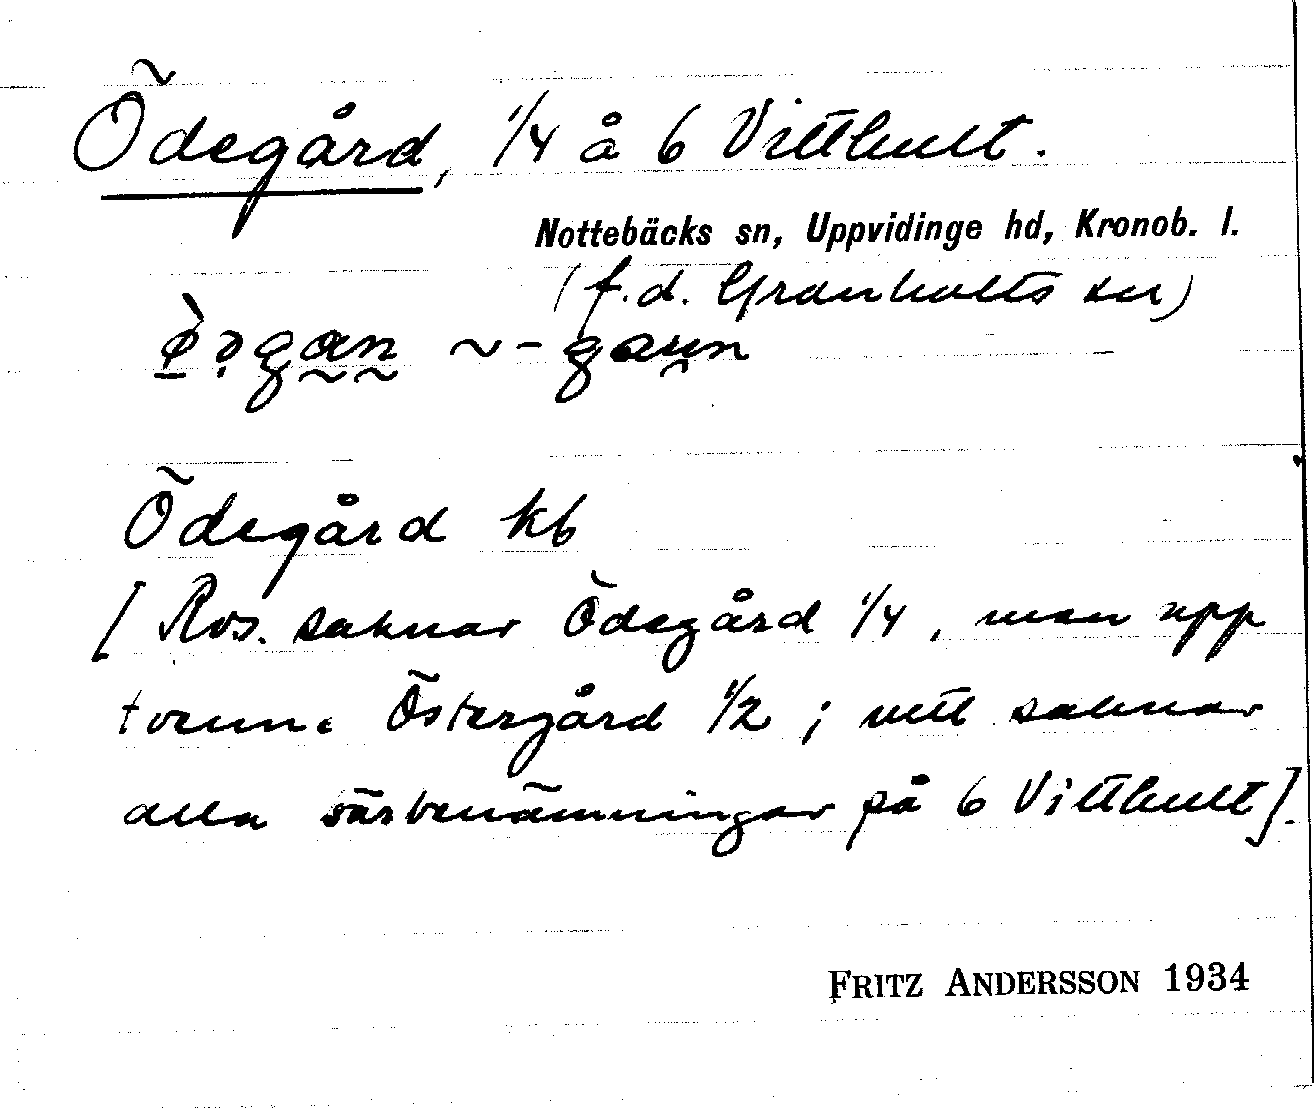 Ödegård, 1/4 å 6 Vitthult.
Nottebäcks sn, Uppvidinge hd, Kronob. l.
(f.d. Granhults sn)
Ödegård kb
[Ros. saknar Ödegård 1/4, men upp
Östergård 1/2; vitt saknar
alla särbenämningar på 6 Vitthult].
FRITZ ANDERSSON 1934